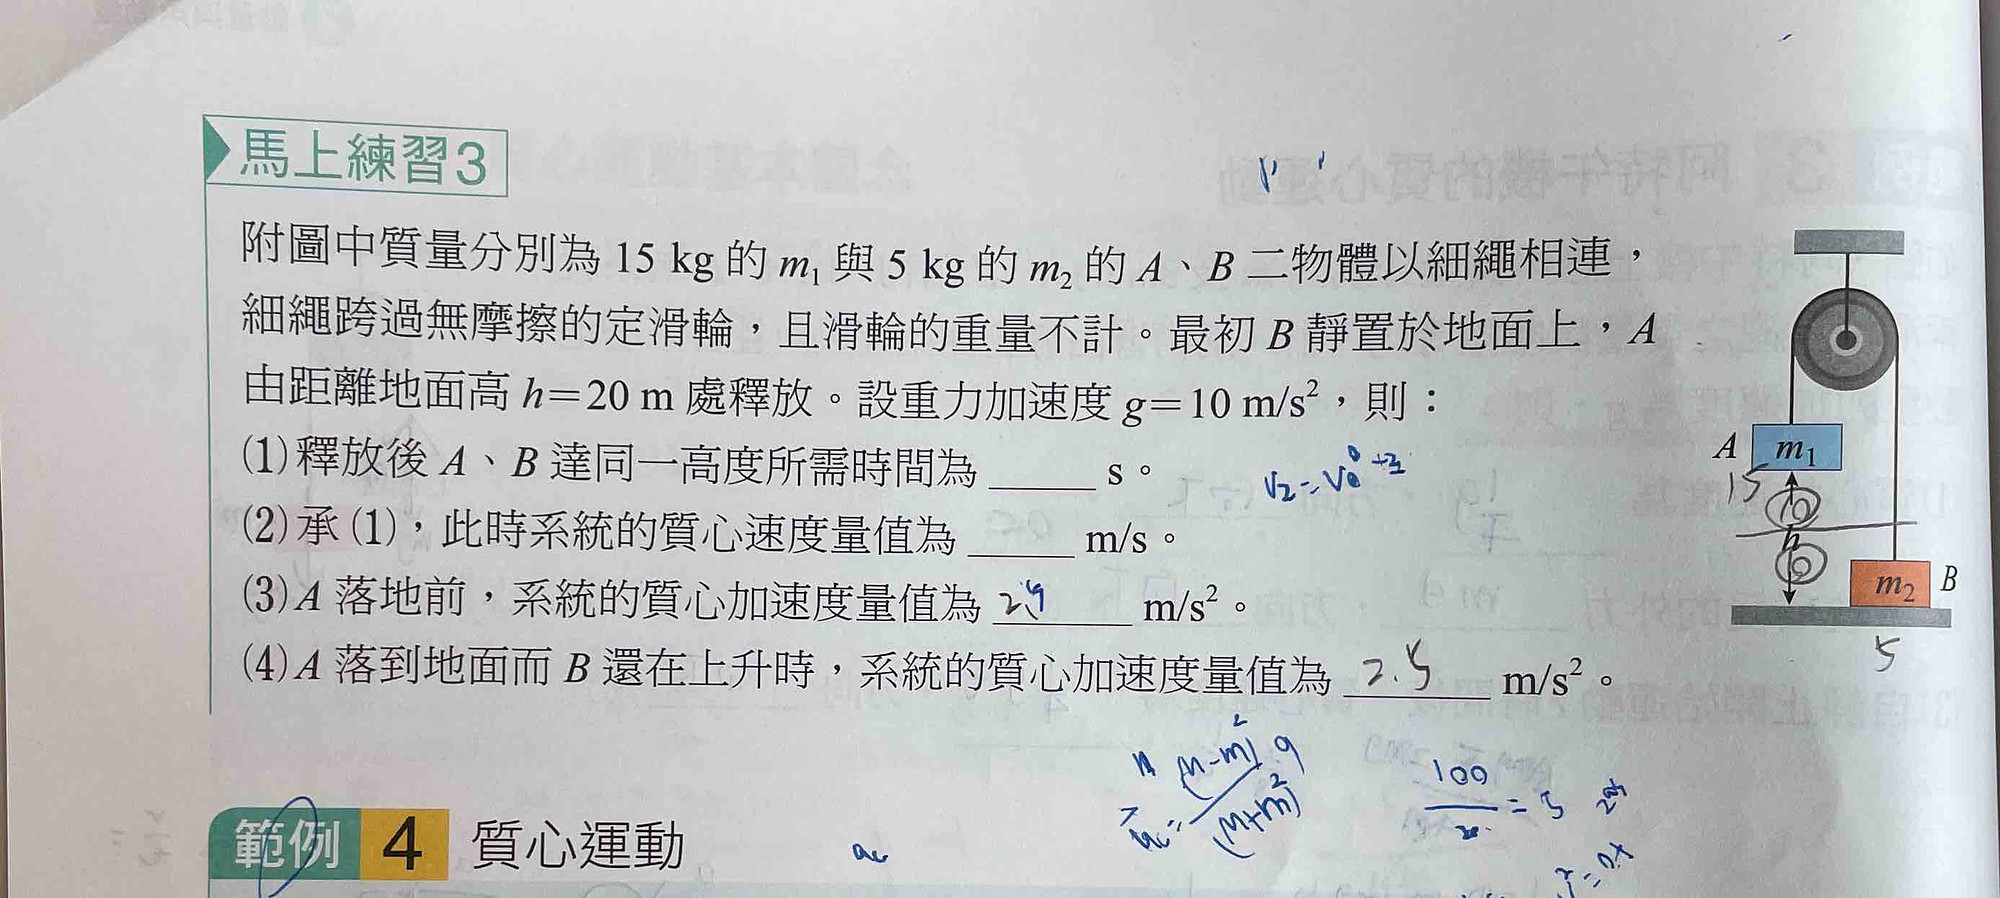 馬上練習3
附圖中質量分別為 15 kg 的 m₁ 與 5 kg 的 m₂ 的 A、B 二物體以細繩相連，
細繩跨過無摩擦的定滑輪，且滑輪的重量不計。最初 B 靜置於地面上，A
由距離地面高 h＝20 m 處釋放。設重力加速度 g＝10 m/s²，則：
(1)釋放後 A、B 達同一高度所需時間為 ______ s。
(2)承(1)，此時系統的質心速度量值為 ______ m/s。
(3)A 落地前，系統的質心加速度量值為 ______ m/s²。
(4)A 落到地面而 B 還在上升時，系統的質心加速度量值為 2.5 m/s²。
A m₁
15
10
h
m₂ B
5
(M-m)² g
(M+m)²
100
= 5
範例 4 質心運動
ac